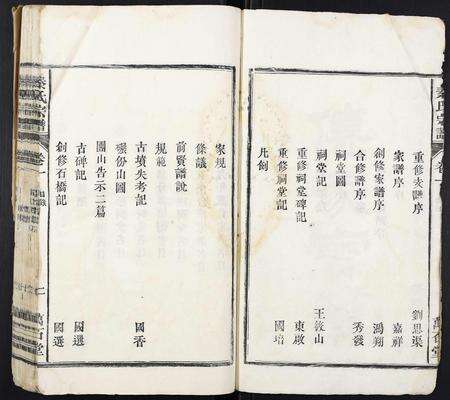 重修支譜序 劉思渠
家譜序 嘉祥
創修家譜序 鴻翔
合修譜序 秀發
祠堂圖
祠堂記 王敘山
重修祠堂碑記 東啟
重修祠堂記 國培
凡例
家規
條議
前賢譜說
規範
墳份山圖
古墳失考記 國香
團山告示二篇
古碑記 國選
創修石橋記 國選